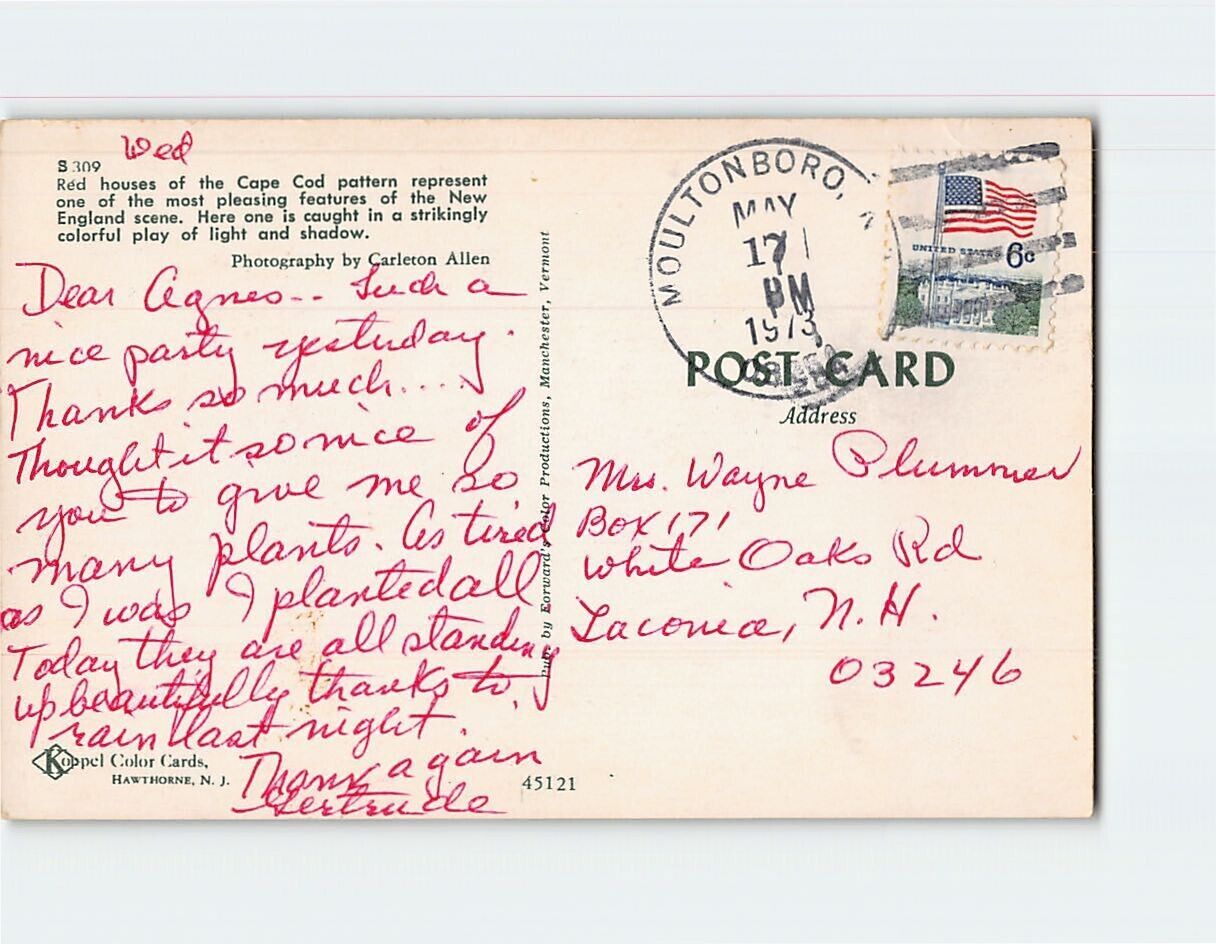 Wed
S 309
Red houses of the Cape Cod pattern represent
one of the most pleasing features of the New
England scene. Here one is caught in a strikingly
colorful play of light and shadow.
Photography by Carleton Allen
Dear Agnes-- Such a
nice party yesterday.
Thanks so much....
Thought it so nice of
you to give me so
many plants. As tired
as I was I planted all
Today they are all standing
up beautifully thanks to
rain last night.
Thanx again
Gertrude
Koppel Color Cards,
HAWTHORNE, N. J.
45121
Pub. by Forward's Color Productions, Manchester, Vermont
MOULTONBORO,
MAY
17
PM
1973
UNITED STATES 6c
POST CARD
Address
Mrs. Wayne Plummer
Box 171
White Oaks Rd
Laconia, N.H.
03246